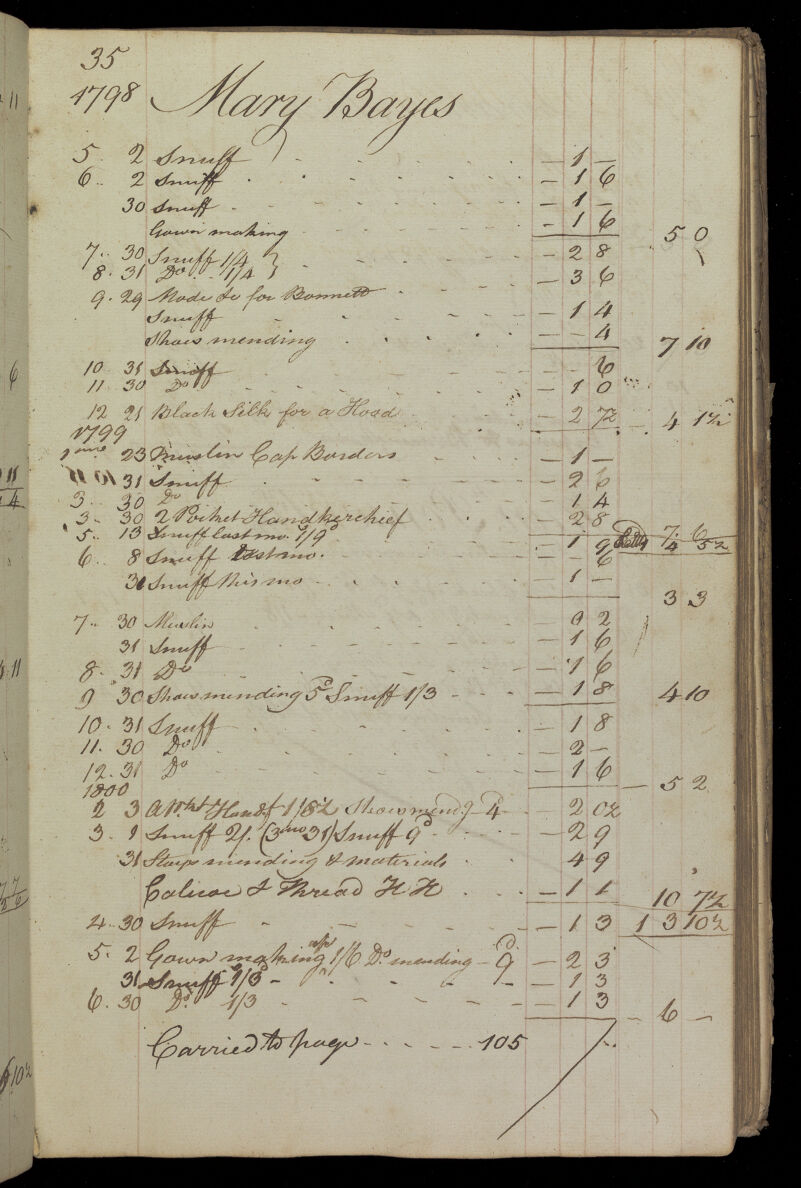 35
1798 Mary Bayes
5 .. 2 Snuff - 1 -
6 .. 2 Snuff - 1 6
30 Snuff - 1 -
Gown making - 1 6 5 0
7 .. 30 Snuff 1/4 } - 2 8
8 . 31 Do 1/4 }
9 . 29 Mode &c for Bonnett - 3 6
Snuff - 1 4
Shoes mending - - 4 7 10
10 31 Snuff 6
11 . 30 Do - 1 0
12 21 Black Silk for a Hood - 2 7½ 4 1½
1799
23 Muslin Cap Borders - 1 -
31 Snuff - 2 6
3 .. 30 Do - 1 4
3 .. 30 2 Pocket Handkerchief - 2 8 7 .. 6
5 .. 13 Snuff last mo. 1/9 - 1 9 4 5½
6 .. 8 Snuff last mo. - - 6
31 Snuff this mo - 1 - 3 .. 3
7 .. 30 Muslin - 0 2
31 Snuff - 1 6
8 . 31 Do - 1 6
9 30 Shoes mending 5d Snuff 1/3 - 1 8 4 10
10 . 31 Snuff - 1 8
11 . 30 Do - 2 -
12 . 31 Do - 1 6 - 5 2
1800
2 3 A Pkt Handf 1/8½ Shoes mendg 4d - 2 0½
3 . 1 Snuff 2/. (3mo 31) Snuff 9d - 2 9
31 Stays mending & materials 4 9
Calicoe & Thread H H - 1 1 10 7½
4 .. 30 Snuff - 1 3 1 3 10½
5 . 2 Gown making 1/6 Do mending - 9d - 2 3
31 Snuff 1/3 - 1 3
6 . 30 Do 1/3 - 1 3 - 6 -
Carried to page 105